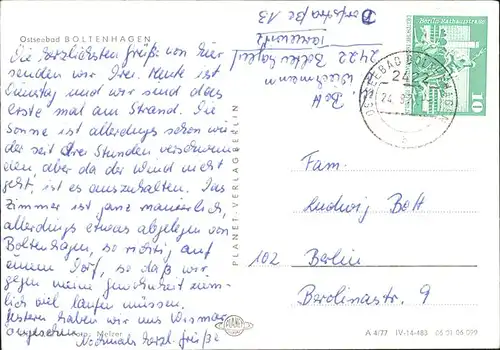 Ostseebad BOLTENHAGEN
Die herzlichsten Grüße von hier
senden wir Drei. Heute ist
Dienstag und wir sind das
erste mal am Strand. Die
Sonne ist allerdings schon wie
der seit drei Stunden verschwun
den, aber da der Wind nicht
geht, ist es auszuhalten. Das
Zimmer ist ganz manierlich,
allerdings etwas abgelegen von
Boltenhagen, so richtig auf
einem Dorf, so daß wir
gegen meine Gewohnheit ziem-
lich viel laufen müssen.
Gestern haben wir uns Wismar
angesehen.
Nochmals herzl. Grüße
Melzer
PLANET-VERLAG BERLIN
Bott
2422 Boltenhagen
Tarnewitz
Dorfstraße 13
OSTSEEBAD BOLTENHAGEN
2422
b
10
Fam.
Ludwig Bott
102 Berlin
Berolinastr. 9
PLANET
A 4/77 IV-14-483 06 01 06 039